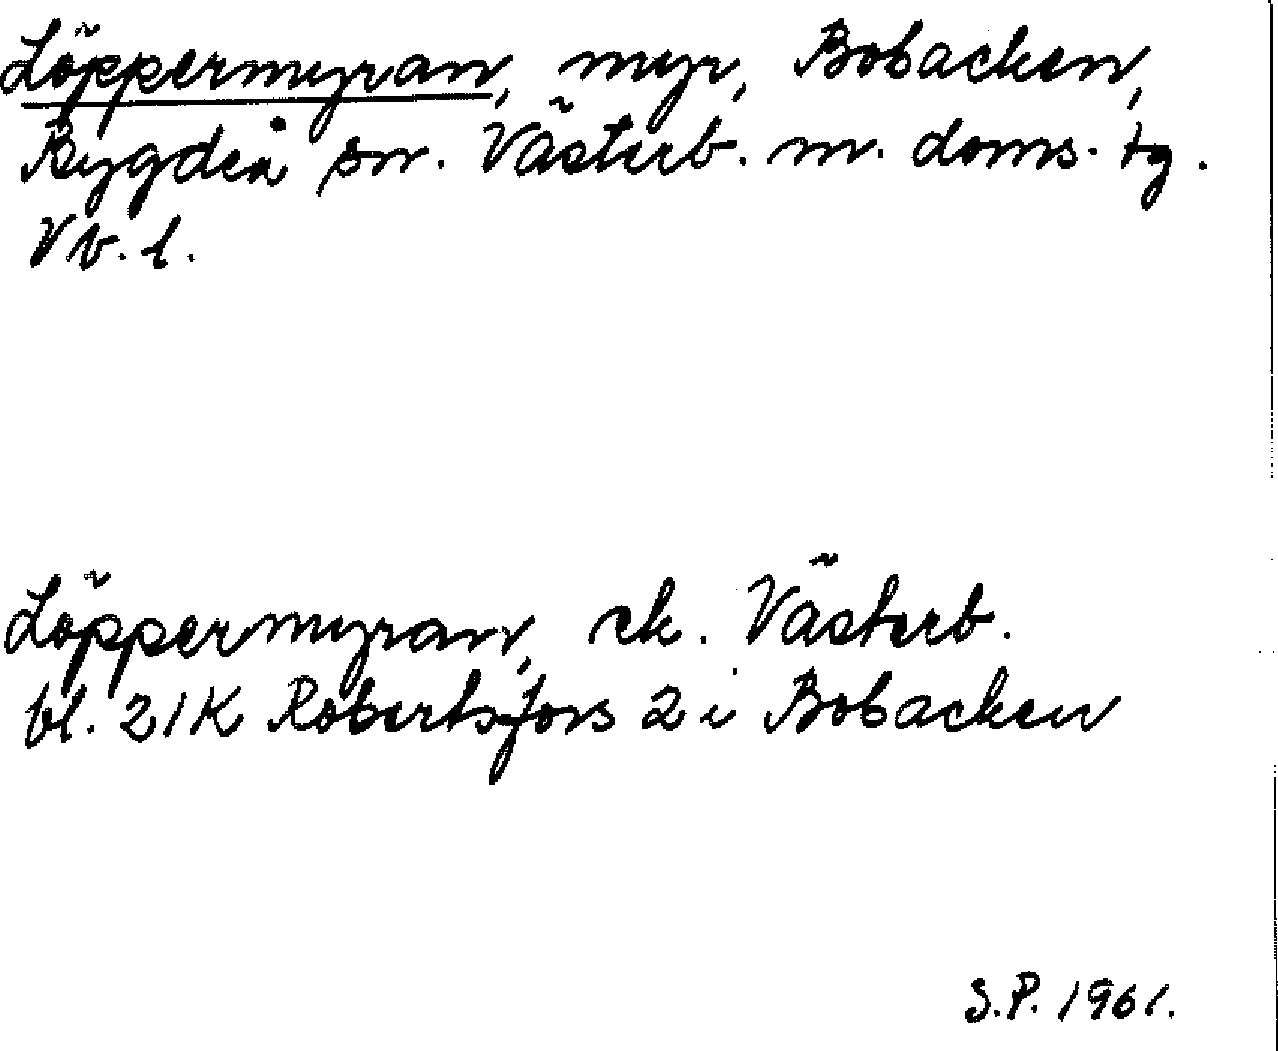 Löppermyran, myr, Bobacken,
Bygdeå sn. Västerb. m. doms. tg.
Vb. l.
Löppermyran, ek. Västerb.
bl. 21K Robertsfors 2 i Bobacken
S.P. 1961.